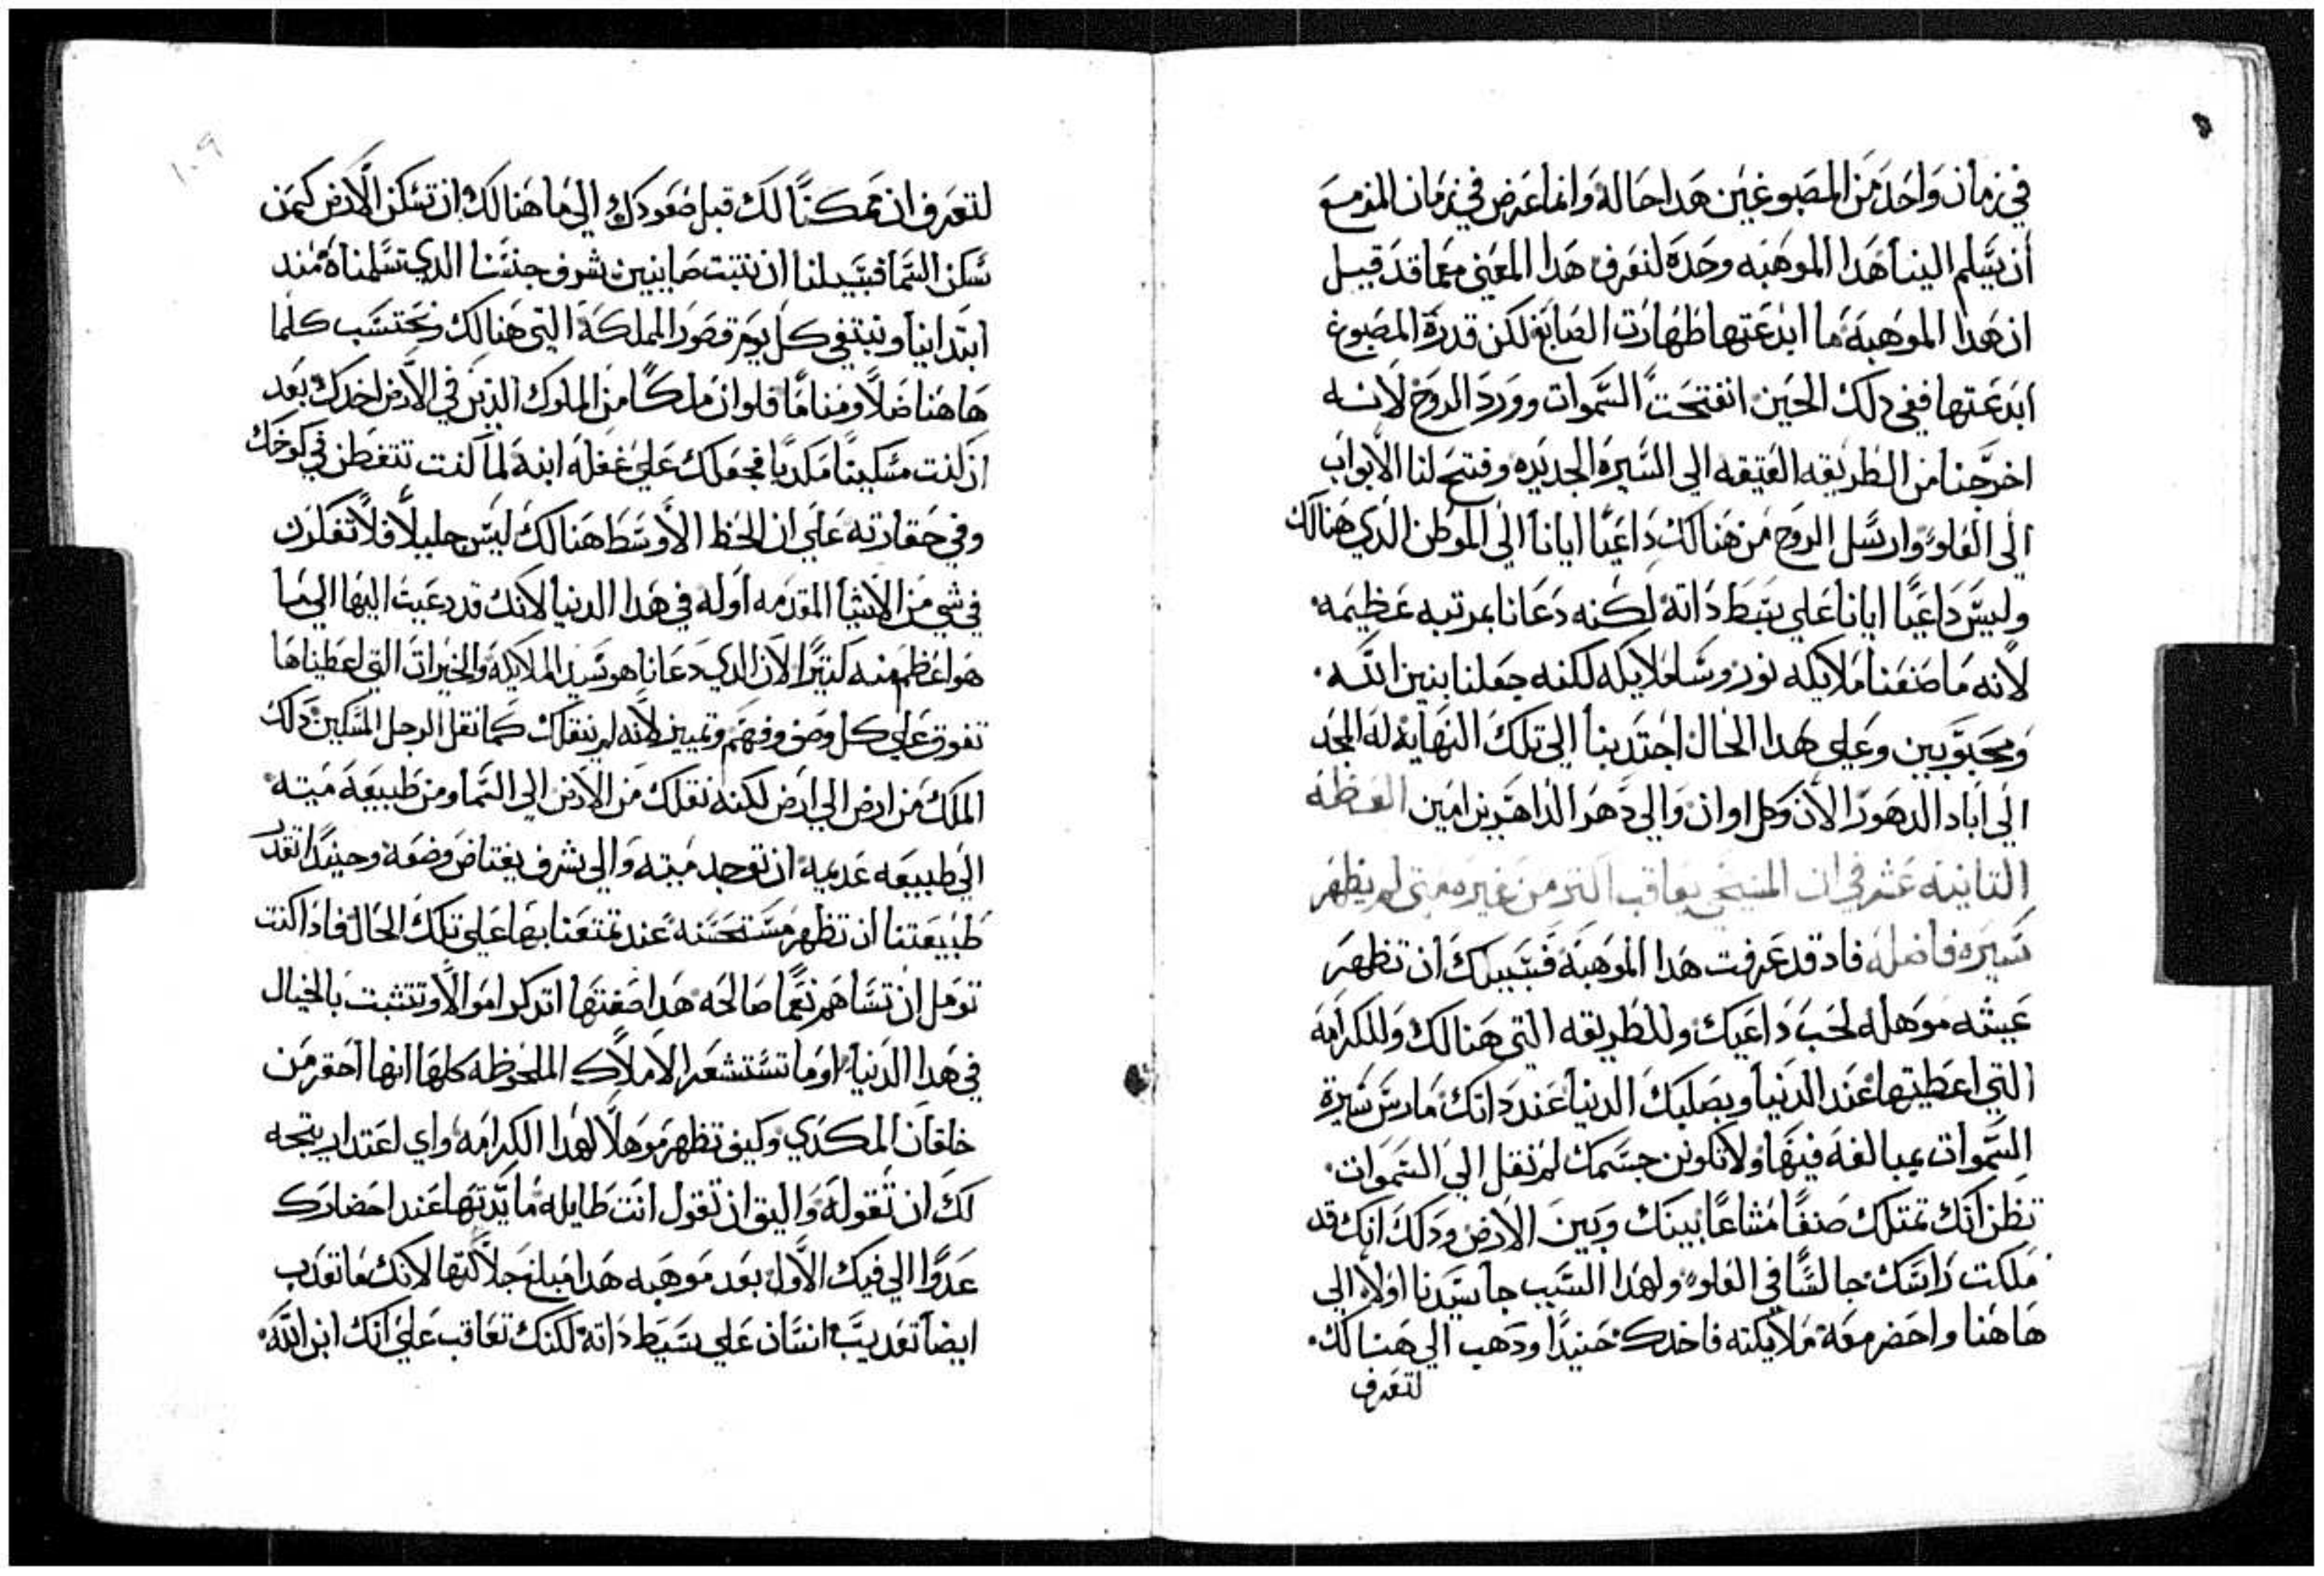 في زمان واحد من المصبوغين هدا حاله وانما عرض في زمان المزمع
أن يتسلم الينا هدا الموهبه وحده لنعرف هدا المعني معما قد قيل
ان هدا الموهبة ما ابدعتها طهارت الصابغ لكن قدرة المصبوغ
ابدعتها ففي دلك الحين انفتحت السموات وورد الروح لانه
اخرجنا من الطريقه العتيقه الي السيرة الجديده وفتح لنا الابواب
الي العلو وارسل الروح من هنالك داعيًا ايانا الي الموطن الدي هنالك
وليس داعيًا ايانا علي بسيط داته لكنه دعانا بمرتبه عظيمه
لانه ما صنعنا ملايكه نور وسا ملايكه لكنه جعلنا بنين الله
ومحبوبين وعلي هدا الحال اجتدبنا الي تلك النهاية له المجد
الي اباد الدهور الآن وكل اوان والي دهر الداهرين امين العظه
التانيه عشر في ان المسيحي يعاقب اكتر من غيره متي لم يظهر
سيره فاضله فاد قد عرفت هدا الموهبة فسبيلك ان تظهر
عيشه موهله لحب داعيك وللطريقه التي هنالك وللكرامة
التي اعطيتها عند الدنيا وبصليك الدنيا عند داتك مارس سيرة
السموات بمبالغة فيها ولا تكونن جسمك لم تنقل الي السموات
تظن انك تمتلك صنفًا مشاعًا بينك وبين الارض ودلك انك قد
ملكت راسك جالسًا في العلو ولهدا السبب جا سيدنا اولا الي
هاهنا واحضر معه ملايكته فاخدك حنيدا ودهب الي هنالك
لتعرف
١٠٩
لتعرف ان ممكنًا لك قبل صعودك الي ما هنالك ان تسكن الأرض كمن
سكن السما فسبيلنا ان نتبت صاينين شرف جنسنا الدي تسلمناه مند
ابتداينا ونبتغي كل يوم قصور المملكة التي هنالك ونحتسب كلما
هاهنا ضلاً ومنامًا فلو ان ملكًا من الملوك الدين في الأرض اخدك بعد
ان كنت مسكينًا مكديا فجعلك علي غفله ابنه لما كنت تتفطن في كوخك
وفي حقارته علي ان الحظ الأوسط هنالك ليس جليلاً فلا تفكرن
في شي من الاشيا المقدمه أوله في هدا الدنيا لانك قد دعيت اليها الي ما
هو اعظم منه كتيرًا لان الدي دعانا هو سيد الملايكة والخيرات التي اعطيناها
تفوق علي كل وصف وفهم وتمييز لانه لم ينقلك كما نقل الرجل المسكين دلك
الملك من ارض الي ارض لكنه نقلك من الارض الي السما ومن طبيعة ميته
الي طبيعه عديمه ان توجد ميته والي شرف يعتاض وصفة وحينيدا تقدر
طبيعتنا ان تظهر مستحسنه عند تمتعنا بها علي تلك الحال فادا كنت
تومل ان تساهم نعمًا صالحه هدا صفتها اتدكر اموالا وتتشبت بالخيال
في هدا الدنيا اوما تستشعر الاملاك الملحوظه كلها انها احقر من
خلقان المكدي وكيف تظهر موهلاً لهدا الكرامه واي اعتدار يتجه
لك ان تقوله واليق ان تقول انت طايله مايدتها عند احضارك
عدوًا الي فيك الأول بعد موهبه هدا مبلغ جلالتها لانك ما تعدب
ايضا تعديب انسان علي بسيط داته لكنك تعاقب علي انك ابن الله